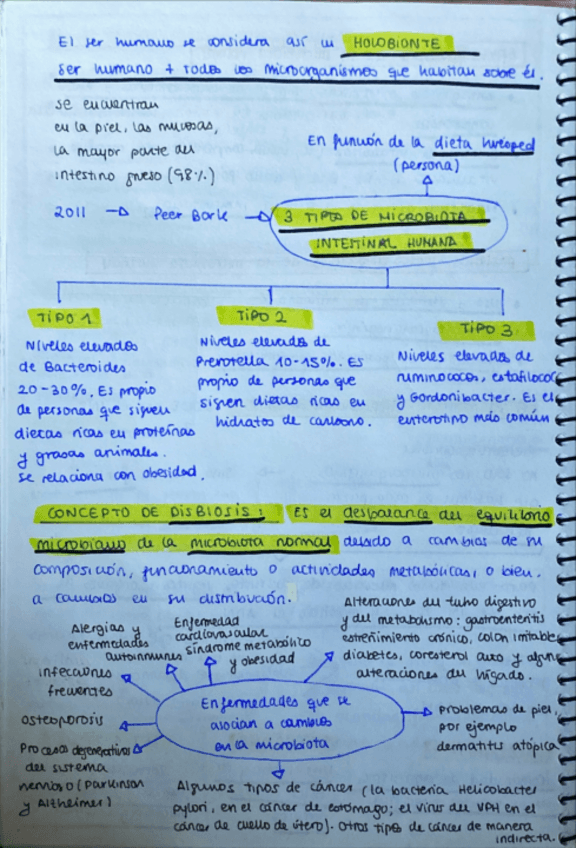 El ser humano se considera así un HOLOBIONTE
ser humano + todos los microorganismos que habitan sobre él.
se encuentran
en la piel, las mucosas,
la mayor parte del
intestino grueso (98%)
En función de la dieta huésped
(persona)
2011 → Peer Bork → 3 TIPOS DE MICROBIOTA
INTESTINAL HUMANA
TIPO 1
Niveles elevados
de Bacteroides
20-30%. Es propio
de personas que siguen
dietas ricas en proteínas
y grasas animales.
Se relaciona con obesidad.
TIPO 2
Niveles elevados de
Prevotella 10-15%. Es
propio de personas que
siguen dietas ricas en
hidratos de carbono.
TIPO 3
Niveles elevados de
ruminococos, estafilococ
y Gordonibacter. Es el
enterotipo más común
CONCEPTO DE DISBIOSIS: Es el desbalance del equilibrio
microbiano de la microbiota normal debido a cambios de su
composición, funcionamiento o actividades metabólicas, o bien,
a cambios en su distribución.
Alergias y
enfermedades
autoinmunes
Enfermedad
cardiovascular
síndrome metabólico
y obesidad
Alteraciones del tubo digestivo
y del metabolismo: gastroenteritis
estreñimiento crónico, colon irritable
diabetes, coresterol alto y algunas
alteraciones del hígado.
infecciones
frecuentes
osteoporosis
Procesos degenerativos
del sistema
nervioso (Parkinson
y Altheimer)
Enfermedades que se
asocian a cambios
en la microbiota
Problemas de piel,
por ejemplo
dermatitis atópica
Algunos tipos de cáncer (la bacteria Helicobacter
pylori, en el cáncer de estómago; el virus del VPH en el
cáncer de cuello de útero). Otros tipos de cáncer de manera
indirecta.